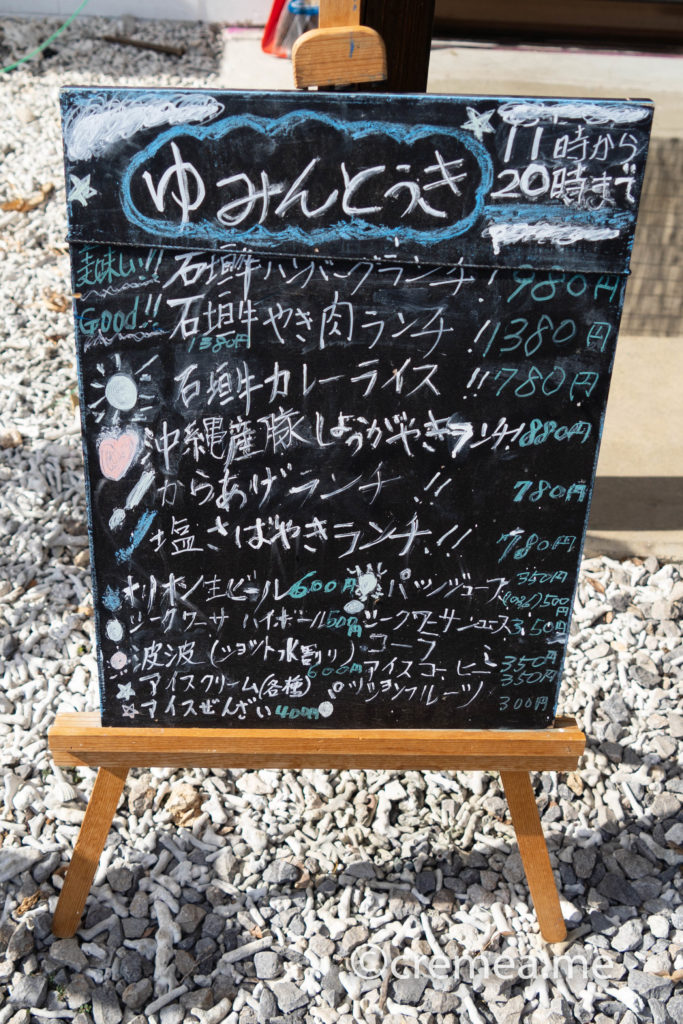 ゆみんとうき
11時から
20時まで
美味しい!! 石垣牛ハンバーグランチ! 980円
Good!! 石垣牛やき肉ランチ!! 1380円
1380円
石垣牛カレーライス!! 780円
沖縄産豚しょうがやきランチ! 880円
からあげランチ!! 780円
塩さばやきランチ!! 780円
オリオン生ビール 600円
シークワーサーハイボール 500円
波波(ショット水割り) 600円
アイスクリーム(各種)
アイスぜんざい 400円
350円
500円
シークワーサージュース 350円
コーラ 350円
アイスコーヒー 350円
パッションフルーツ 300円
©cremea.me